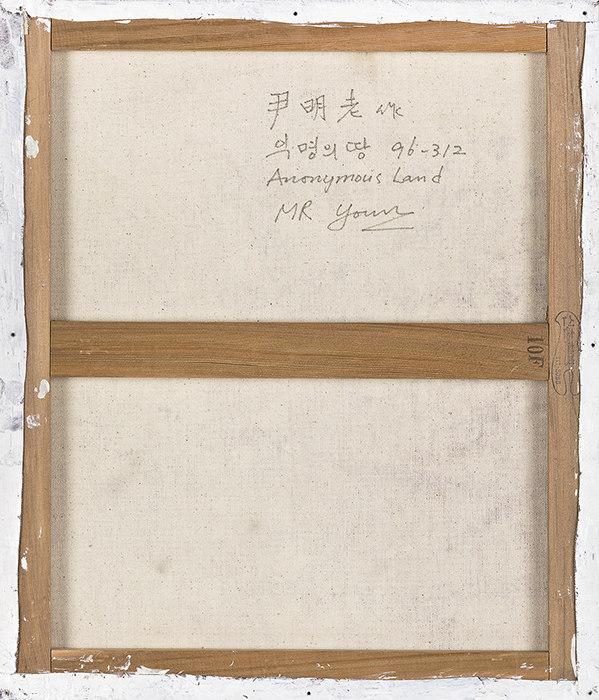 尹明老 作
익명의 땅 96-312
Anonymous Land
MR Youn
10F